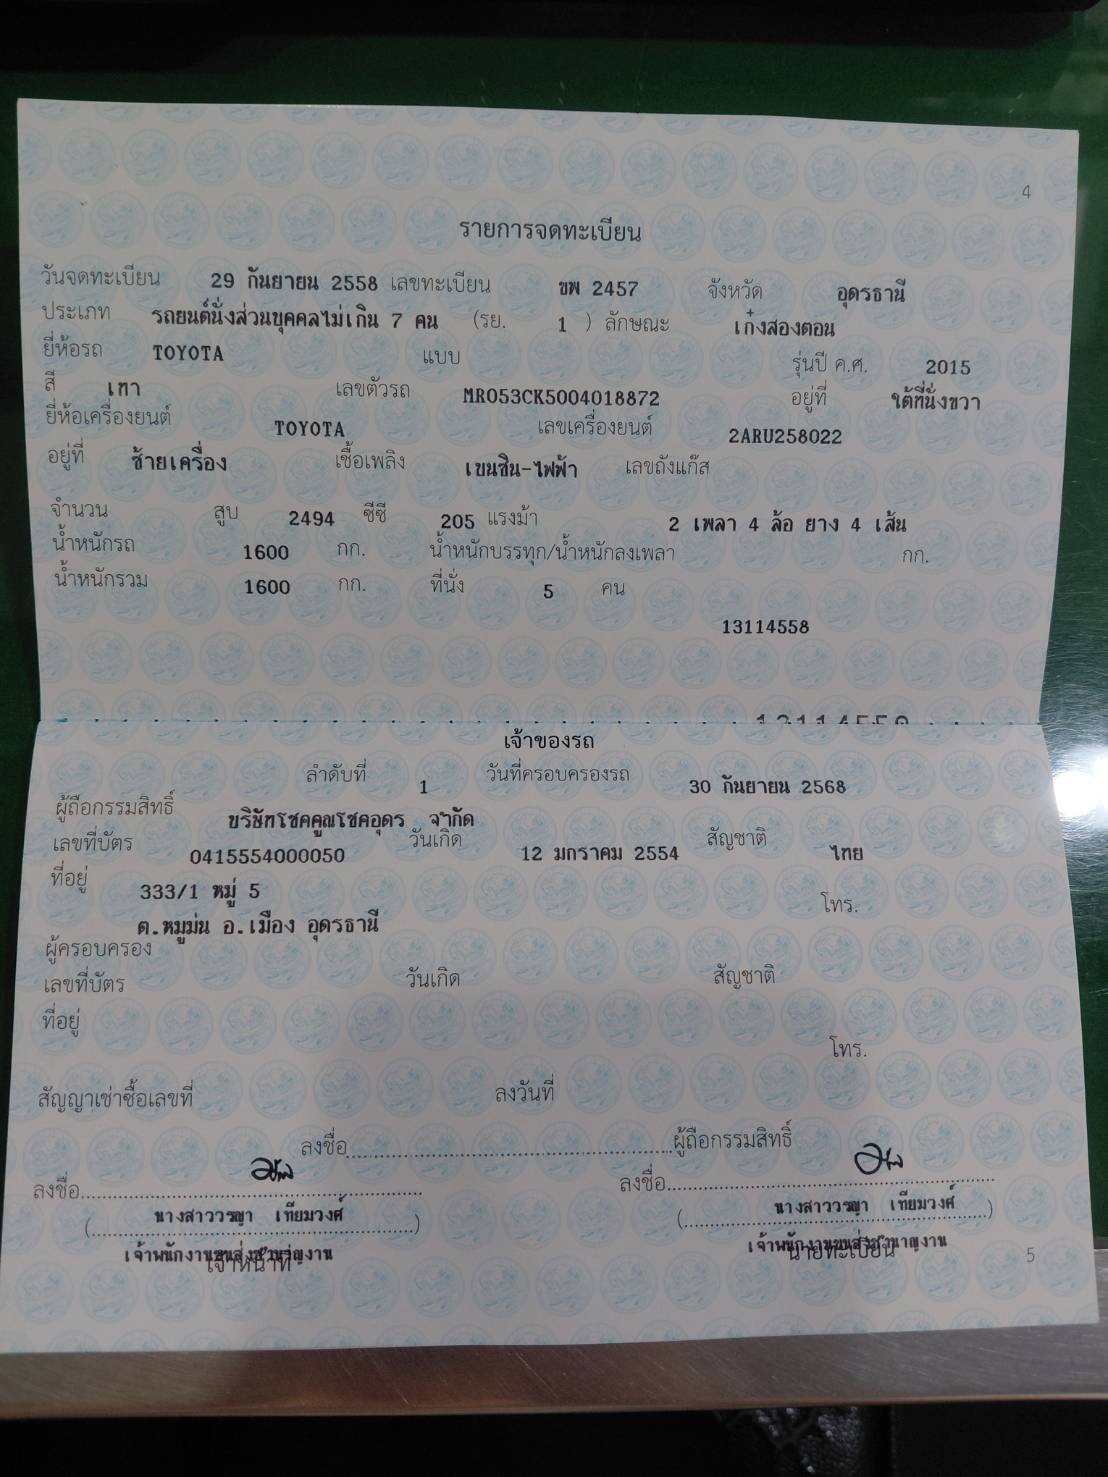 4
รายการจดทะเบียน
วันจดทะเบียน 29 กันยายน 2558 เลขทะเบียน ขพ 2457 จังหวัด อุดรธานี
ประเภท รถยนต์นั่งส่วนบุคคลไม่เกิน 7 คน (รย. 1 ) ลักษณะ เก๋งสองตอน
ยี่ห้อรถ TOYOTA แบบ รุ่นปี ค.ศ. 2015
สี เทา เลขตัวรถ MR053CK5004018872 อยู่ที่ ใต้ที่นั่งขวา
ยี่ห้อเครื่องยนต์ TOYOTA เลขเครื่องยนต์ 2ARU258022
อยู่ที่ ซ้ายเครื่อง เชื้อเพลิง เบนซิน-ไฟฟ้า เลขถังแก๊ส
จำนวน สูบ 2494 ซีซี 205 แรงม้า 2 เพลา 4 ล้อ ยาง 4 เส้น
น้ำหนักรถ 1600 กก. น้ำหนักบรรทุก/น้ำหนักลงเพลา กก.
น้ำหนักรวม 1600 กก. ที่นั่ง 5 คน
13114558
เจ้าของรถ
ลำดับที่ 1 วันที่ครอบครองรถ 30 กันยายน 2568
ผู้ถือกรรมสิทธิ์ บริษัทโชคคูณโชคอุดร จำกัด
เลขที่บัตร 0415554000050 วันเกิด 12 มกราคม 2554 สัญชาติ ไทย
ที่อยู่ 333/1 หมู่ 5 โทร.
ต.หมูม่น อ.เมือง อุดรธานี
ผู้ครอบครอง
เลขที่บัตร วันเกิด สัญชาติ
ที่อยู่
โทร.
สัญญาเช่าซื้อเลขที่ ลงวันที่
ลงชื่อ ผู้ถือกรรมสิทธิ์
ลงชื่อ ลงชื่อ
(นางสาววรญา เทียมวงศ์) (นางสาววรญา เทียมวงศ์)
เจ้าพนักงานขนส่งชำนาญงาน เจ้าพนักงานขนส่งชำนาญงาน
เจ้าหน้าที่ นายทะเบียน 5